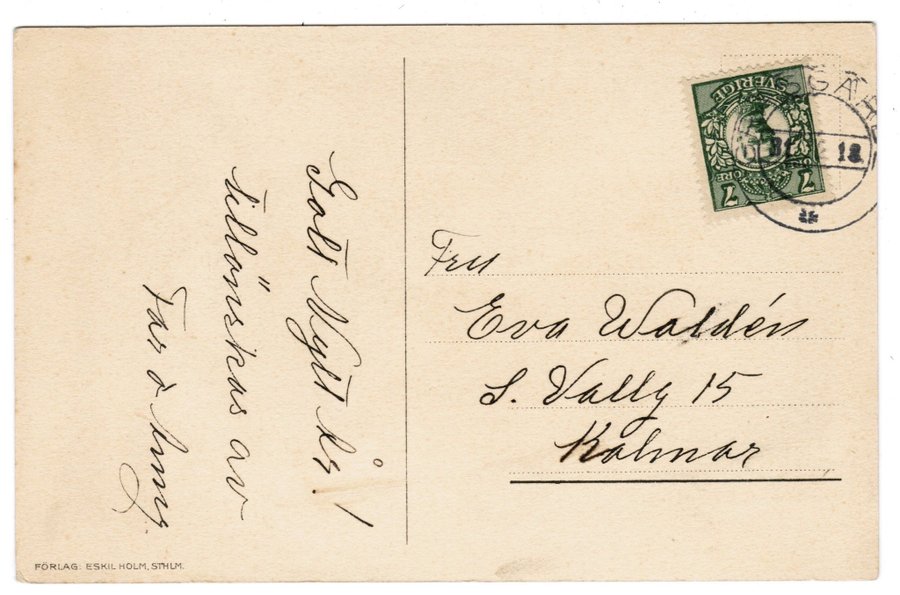 Gott Nytt År!
tillönskas av
Far o
Fru
Eva Waldén
S. Vallg 15
Kalmar
SVERIGE
7 ÖRE 7
FÖRLAG: ESKIL HOLM, STHLM.